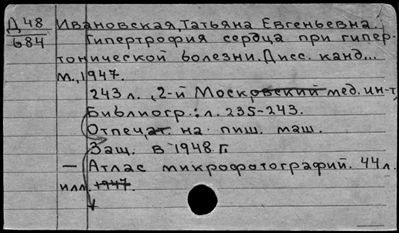 Д 48 Ивановская, Татьяна Евгеньевна.
684 Гипертрофия сердца при гипер-
тонической болезни. Дисс. канд...
М., 1947.
243 л., 2-й Московский мед. ин-т,
Библиогр.: л. 235-243.
Отпечат. на пиш. маш.
Защ. в 1948 г.
— Атлас микрофотографий. 44 л.
илл. 1947.